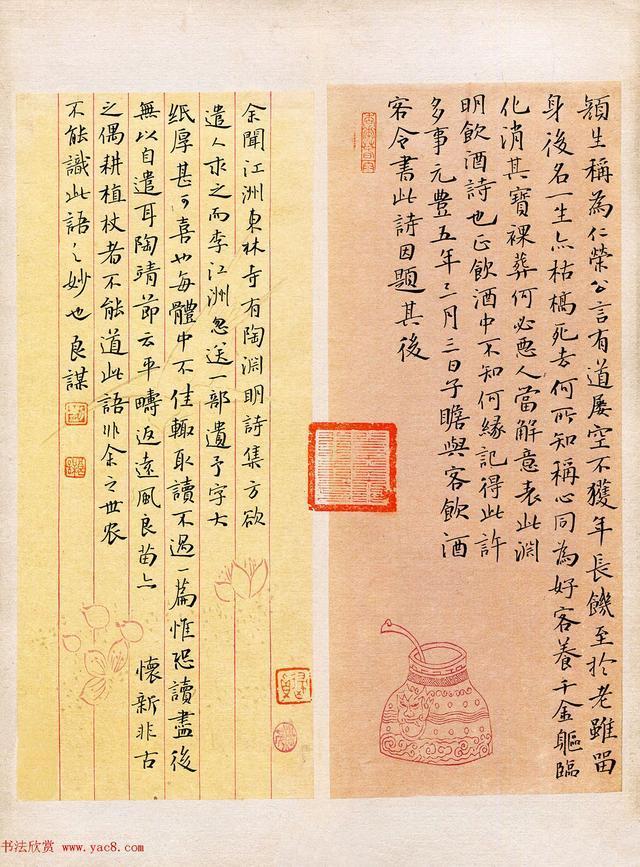 顏生稱為仁榮公言有道屢空不獲年長饑至於老雖留
身後名一生亦枯槁死去何所知稱心同為好客養千金軀臨
化消其寶裸葬何必惡人當解意表此淵
明飲酒詩也正飲酒中不知何緣記得此許
多事元豊五年三月三日子瞻與客飲酒
客令書此詩因題其後
余聞江洲東林寺有陶淵明詩集方欲
遣人求之而李江洲忽送一部遺予字大
紙厚甚可喜也每體中不佳輙取讀不過一篇惟恐讀盡後
無以自遣耳陶靖節云平疇返遠風良苗亦懷新非古
之偶耕植杖者不能道此語非余之世农
不能識此語之妙也良謀
书法欣赏 www.yac8.com